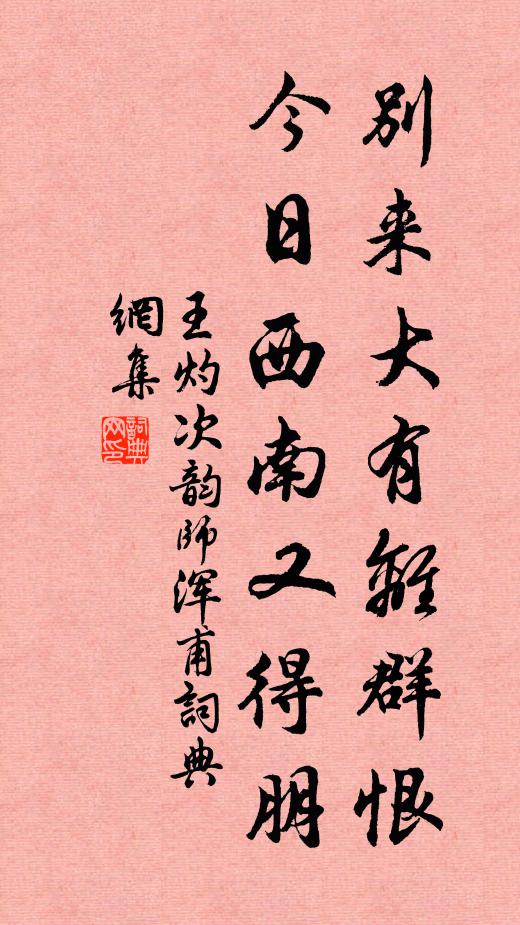 别来大有離群恨
今日西南又得朋
王灼次韵師浑甫詞典
網集
詞典
网印